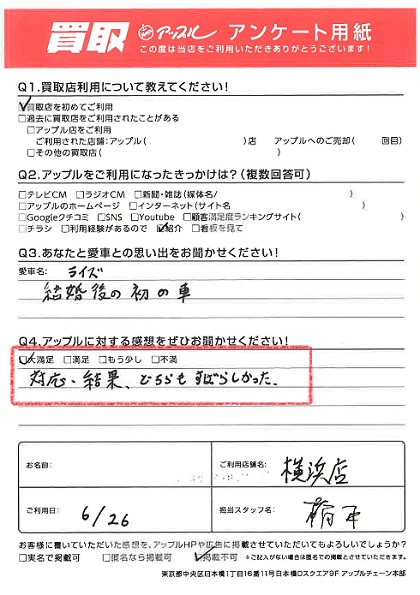 買取 アップル アンケート用紙
この度は当店をご利用いただきありがとうございます!
Q1.買取店利用について教えてください!
買取店を初めてご利用
□過去に買取店をご利用されたことがある
□アップル店をご利用
ご利用された店舗:アップル( )店 アップルへのご売却( 回目)
□その他の買取店( )
Q2.アップルをご利用になったきっかけは?(複数回答可)
□テレビCM □ラジオCM □新聞・雑誌(媒体名/ )
□アップルのホームページ □インターネット(サイト名 )
□Googleクチコミ □SNS □Youtube □顧客満足度ランキングサイト( )
□チラシ □利用経験があるので ☑紹介 □看板を見て
Q3.あなたと愛車との思い出をお聞かせください!
愛車名: ライズ
結婚後の初の車
Q4.アップルに対する感想をぜひお聞かせください!
大満足 □満足 □もう少し □不満
対応、結果、どちらもすばらしかった。
お名前: ご利用店舗名: 横浜店
ご利用日: 6/26 担当スタッフ名:
お客様に書いていただいた感想を、アップルHPや広告に掲載させていただいてもよろしいでしょうか?
□実名で掲載可 □匿名なら掲載可 ☑掲載不可 ※ご記入がない場合は匿名での掲載とさせていただきます。
東京都中央区日本橋1丁目16番11号日本橋Dスクエア9F アップルチェーン本部